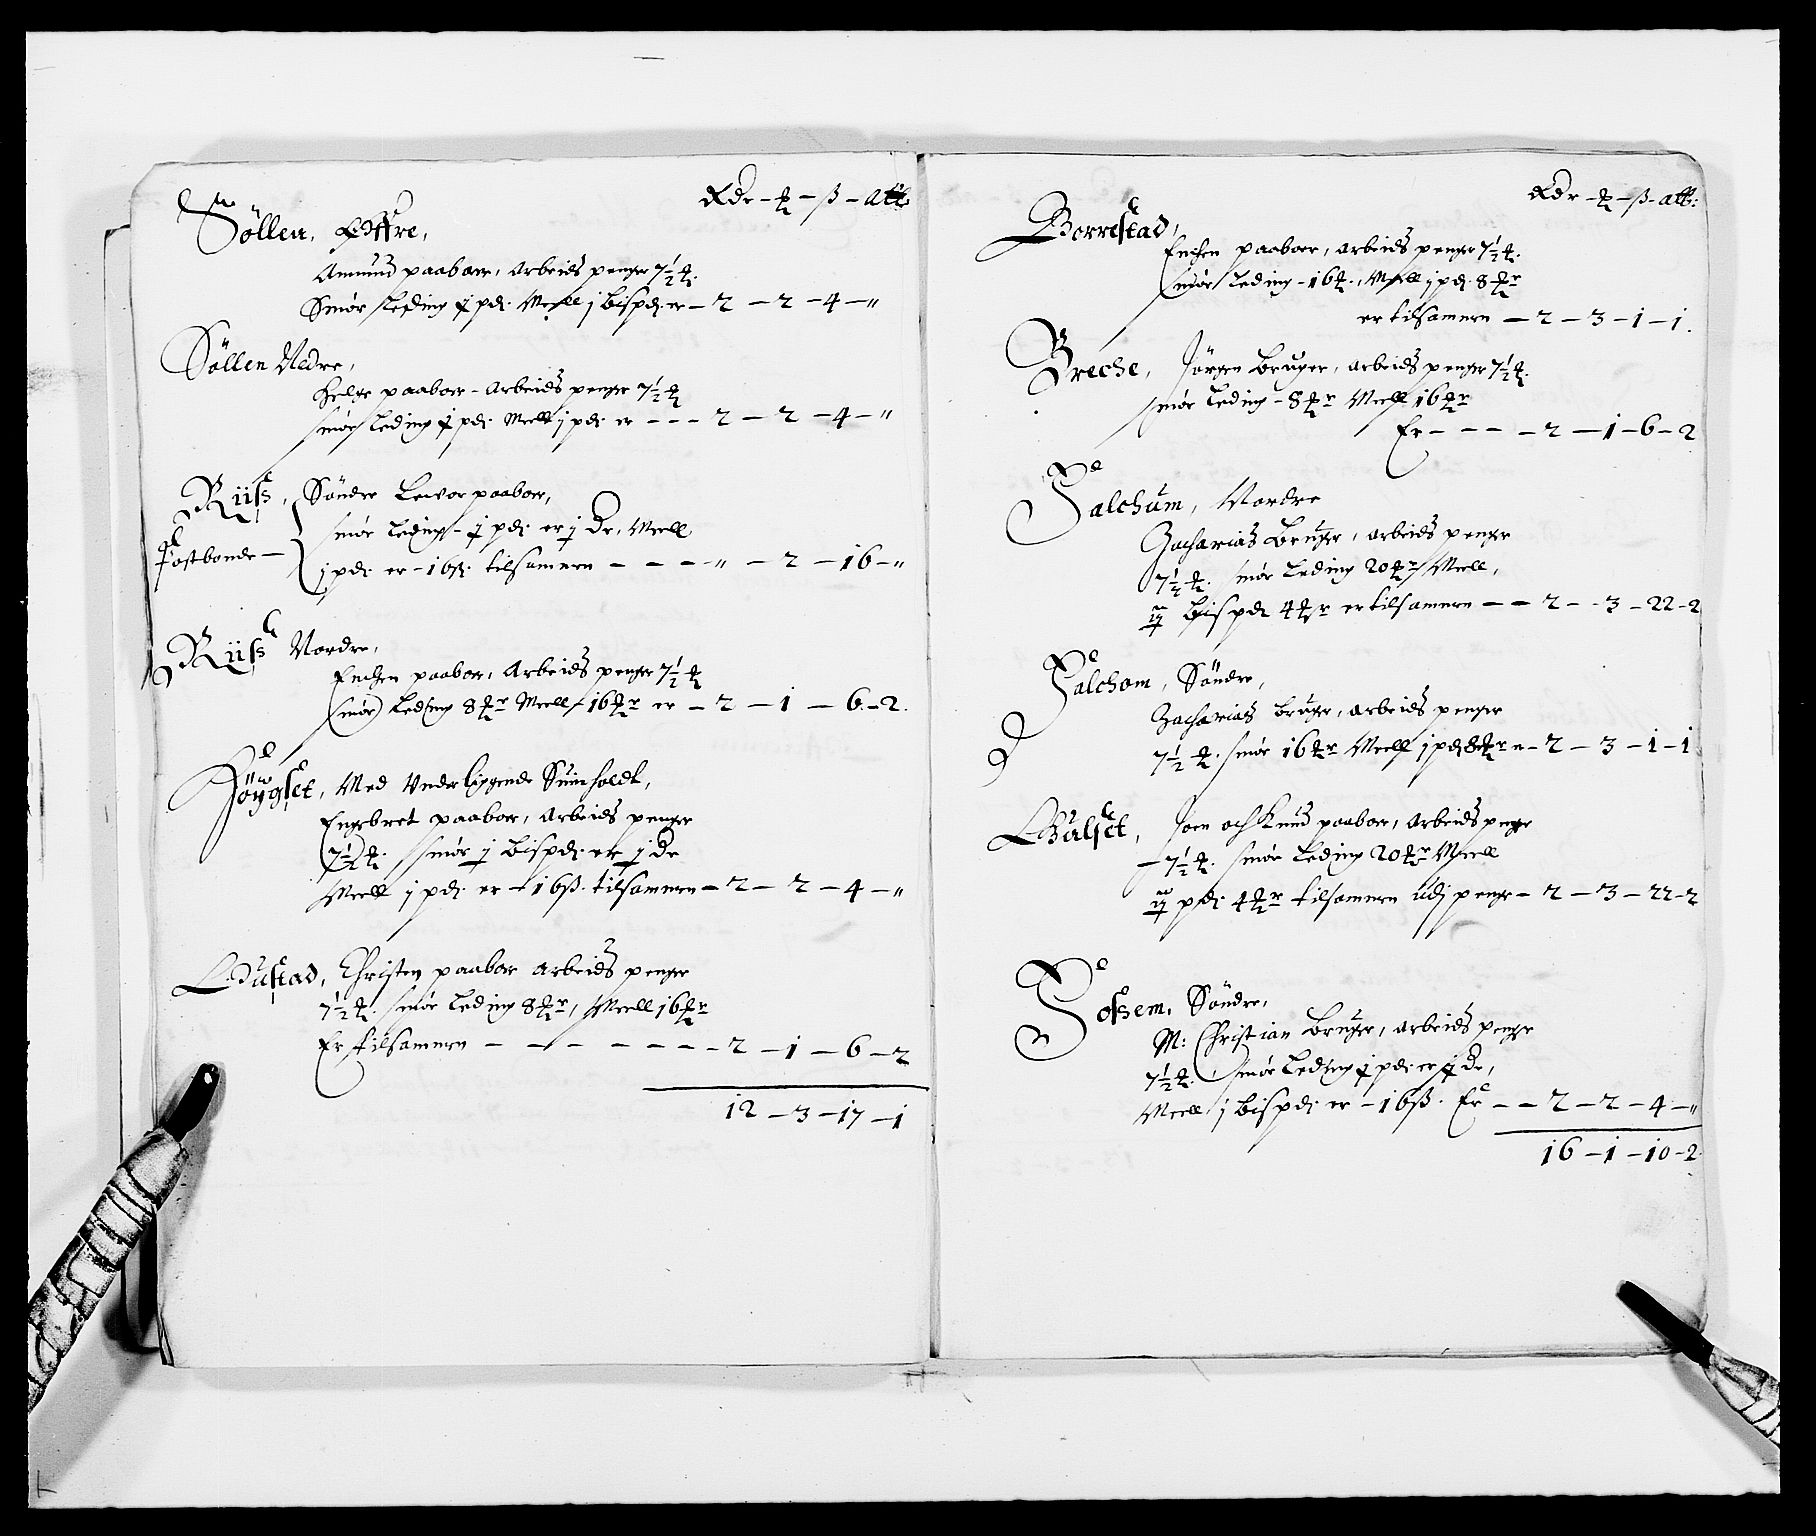 Rdr - ₰ - ß - alb:
Söllen, Öffre,
Anmund paaboer, Arbeids penger 7½ ₰.
Smør Leding j pd. Meell j bispd. er - 2 - 2 - 4 - "
Söllen Nedre,
Helge paaboer - Arbeids penger 7½ ₰
smør Leding j pd. Meell j pd. er - - - 2 - 2 - 4 - "
Riiss, Söndre Leivor paaboer,
smør Leding - j pd. er j Dr, Meell
Postbonde - j pd. er - 16 ß. tilsamen - - - - " - 2 - 16 - "
Riiss Nordre,
Enchen paaboer, Arbeids penger 7½ ₰
smør Leding 8 ₰r Meell - 16 ₰r er - 2 - 1 - 6 - 2.
Høygset, Med Underliggende Suinholdt,
Engebret paaboer, Arbeids penger
7½ ₰. smør j bispd. er j Dr
Meell j pd. er - 16 ß. tilsamen - 2 - 2 - 4 - "
Dustad, Christen paaboer arbeids penger
7½ ₰. smør Leding 8 ₰r, Meell 16 ₰r
Er tilsamen - - - - - - - 2 - 1 - 6 - 2
12 - 3 - 17 - 1
Rdr - ₰ - ß - alb:
Borrestad,
Enchen paaboer, arbeids penger 7½ ₰.
smør Leding - 16 ₰., Meell j pd. 8 ₰r
er tilsamen - 2 - 3 - 1 - 1.
Breche, Jörgen Bruger, arbeids penger 7½ ₰.
smør Leding - 8 ₰r Meell 16 ₰r
Er - - - - 2 - 1 - 6 - 2
Falchum, Nordre
Zacharias Bruger, arbeids penger
7½ ₰. smør Leding 20 ₰r Meell,
bispd 4 ₰r er tilsamen - - 2 - 3 - 22 - 2
Falchom, Söndre,
Zacharias bruger, arbeids penger
7½ ₰. smør 16 ₰r Meell j pd 8 ₰r er - 2 - 3 - 1 - 1
Gulset, Joen och Knud paaboer, arbeids penge
7½ ₰. smør Leding 20 ₰r Meell
pd. 4 ₰r tilsamen udj penge - 2 - 3 - 22 - 2
Fossem, Söndre,
M: Christian Bruger, arbeids penge
7½ ₰. smør Leding j pd. er j Dr,
Meell j bispd. er - 16 ß. Er - - 2 - 2 - 4 - "
16 - 1 - 10 - 2